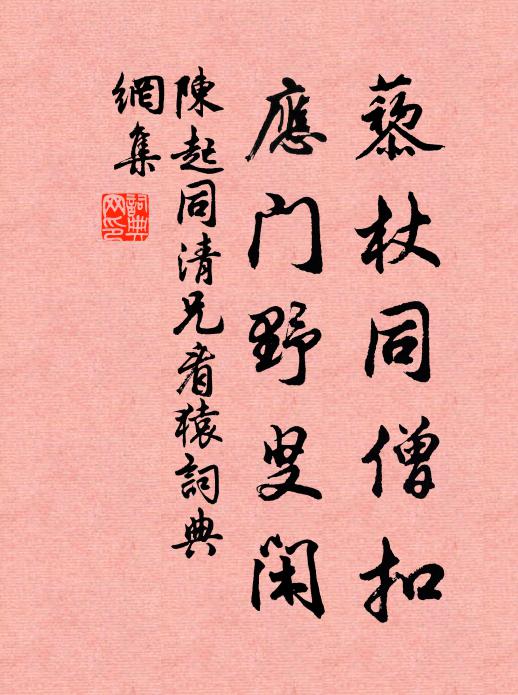 藜杖同僧扣
應门野叟闲
陳起同清兄看猿詞典
網集
詞典
网印